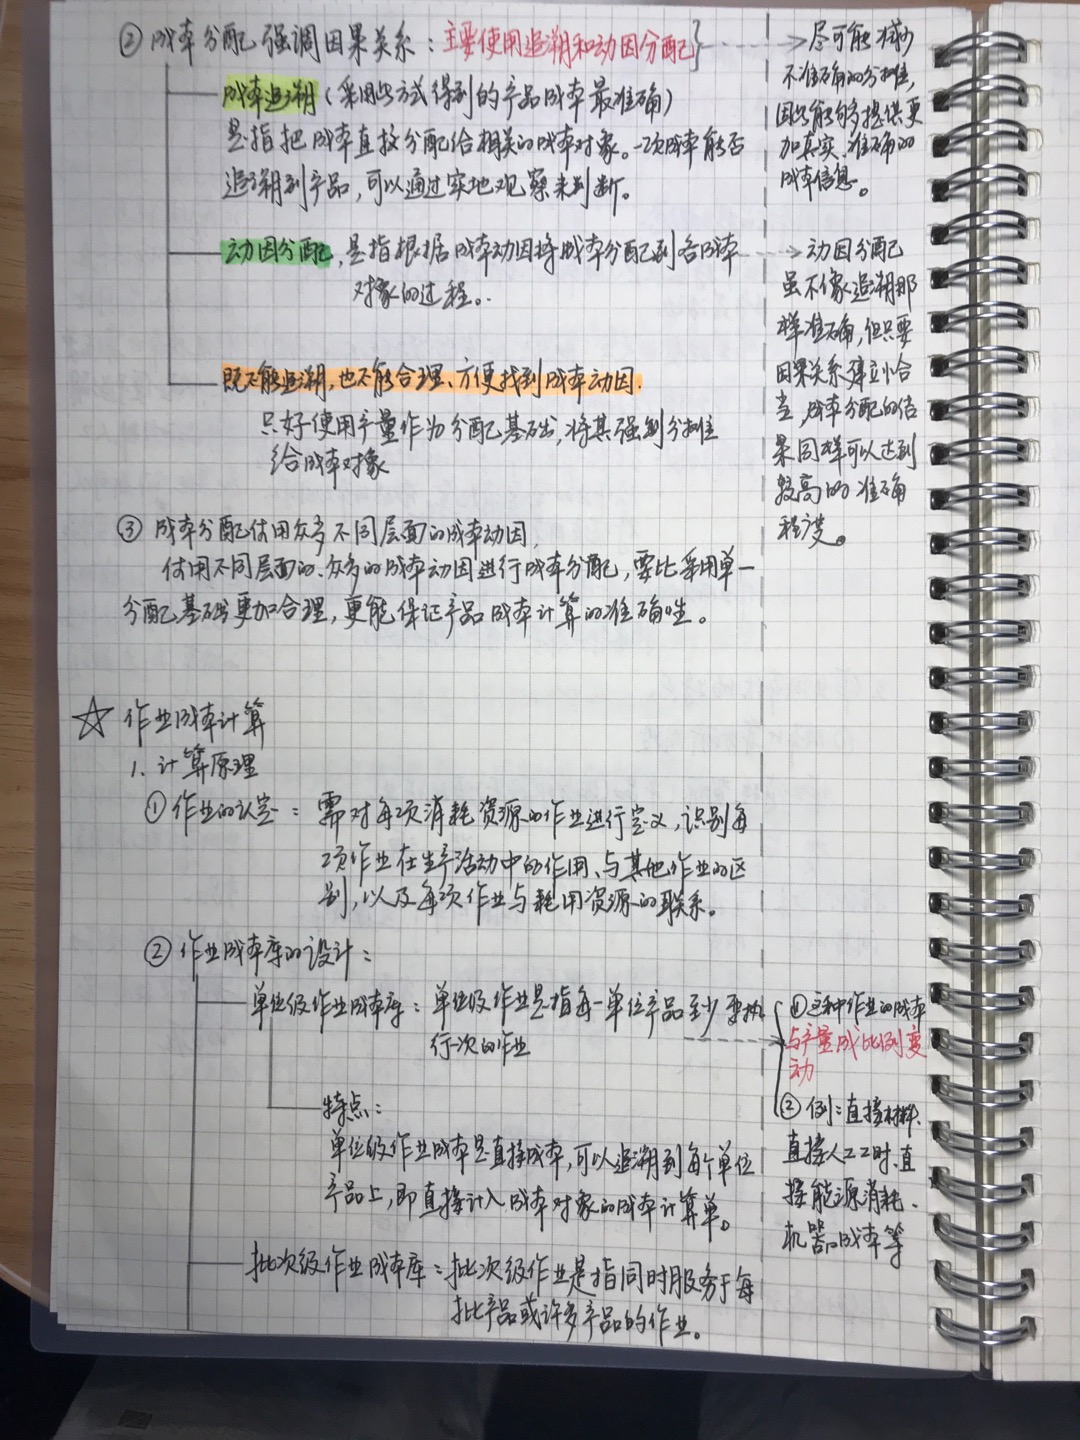 ② 成本分配强调因果关系：主要使用追溯和动因分配
成本追溯（采用此方式得到的产品成本最准确）
是指把成本直接分配给相关的成本对象。一项成本能否
追溯到产品，可以通过实地观察来判断。
动因分配，是指根据成本动因将成本分配到各成本
对象的过程。
既不能追溯，也不能合理、方便找到成本动因．
只好使用产量作为分配基础，将其强制分摊
给成本对象
③ 成本分配使用众多不同层面的成本动因．
使用不同层面的、众多的成本动因进行成本分配，要比采用单一
分配基础更加合理，更能保证产品成本计算的准确性。
☆ 作业成本计算
1、计算原理
① 作业的认定：需对每项消耗资源的作业进行定义，识别每
项作业在生产活动中的作用、与其他作业的区
别，以及每项作业与耗用资源的联系。
② 作业成本库的设计：
单位级作业成本库：单位级作业是指每一单位产品至少要执
行次的作业
特点：
单位级作业成本是直接成本，可以追溯到每个单位
产品上，即直接计入成本对象的成本计算单。
批次级作业成本库：批次级作业是指同时服务于每
批产品或许多产品的作业。
尽可能减少
不准确的分摊，
因此能够提供更
加真实、准确的
成本信息。
动因分配
虽不像追溯那
样准确，但只要
因果关系建立恰
当，成本分配的结
果同样可以达到
较高的准确
程度。
① 这种作业的成本
与产量成比例变
动
② 例：直接材料、
直接人工工时、直
接能源消耗、
机器成本等